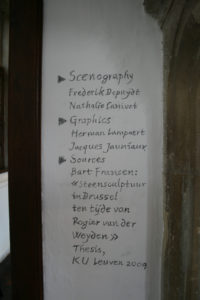 ▶ Scenography
Frederik Depuydt
Nathalie Canivet
▶ Graphics
Herman Lampaert
Jacques Jauniaux
▶ Sources
Bart Fransen:
«Steensculptuur
in Brussel
ten tijde van
Rogier van der
Weyden»
Thesis,
K.U. Leuven 2009